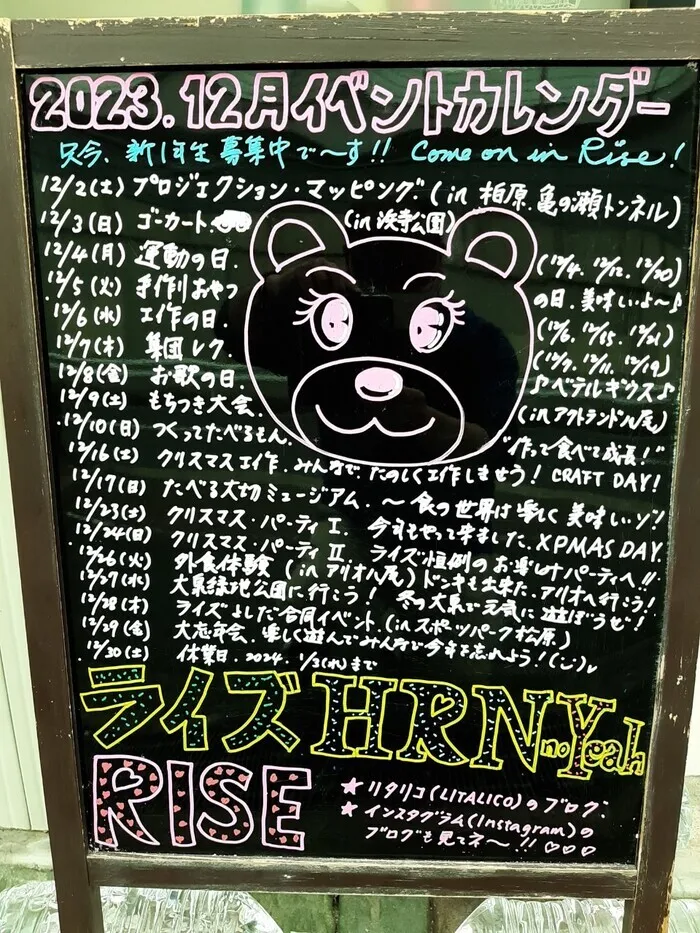 2023.12月イベントカレンダー
只今、新1年生募集中で〜す!! Come on in Rise!
12/2(土) プロジェクション・マッピング (in 柏原.亀の瀬トンネル)
12/3(日) ゴーカート (in 浜寺公園)
12/4(月) 運動の日. (12/4. 12/12. 12/20)
12/5(火) 手作りおやつの日.美味しいよ〜♪
12/6(水) 工作の日. (12/6. 12/15. 12/21)
12/7(木) 集団レク. (12/7. 12/11. 12/19)
12/8(金) お歌の日. ♪ベテルギウス♪
12/9(土) もちつき大会. (inアクトランド八尾)
12/10(日) つくってたべるもん. "作って食べて成長!"
12/16(土) クリスマス工作.みんなで、たのしく工作しませう! CRAFT DAY!
12/17(日) たべる大切ミュージアム. 〜食の世界は楽しく美味しいゾ!
12/23(土) クリスマス・パーティⅠ. 今年もやって来ました.XPMAS DAY.
12/24(日) クリスマス・パーティⅡ ライズ恒例のお楽しみパーティへ!!
12/26(火) 外食体験 (inアリオ八尾) ドンキも出来た.アリオへ行こう!
12/27(水) 大泉緑地公園に行こう! 冬の大泉で元気に遊ぼうぜ!
12/28(木) ライズよしだ合同イベント.(inスポーツパーク松原)
12/29(金) 大忘年会.楽しく遊んでみんなで今年を忘れよう!
12/30(土) 休業日.2024. 1/3(水)まで
ライズ HRN no Yeah
RISE
★リタリコ(LITALICO)のブログ.
★インスタグラム(Instagram)の
ブログも見てネ〜!! ♡♡♡